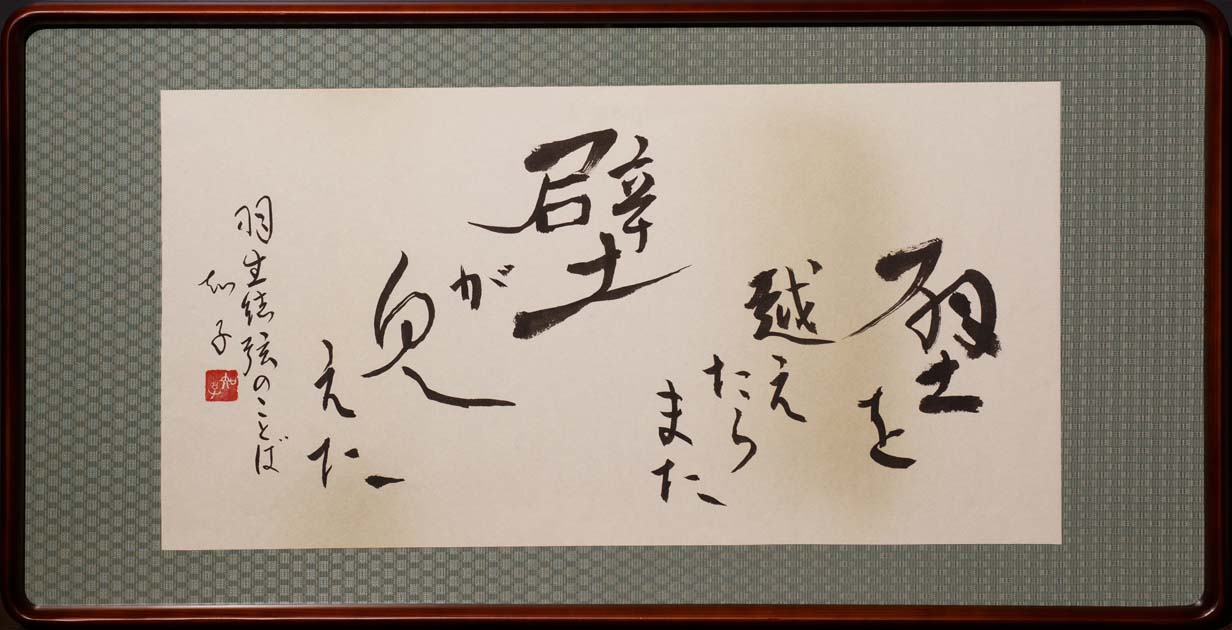 壁を
越え
たら
また
壁
が
見
えた
羽生結弦のことば
知子